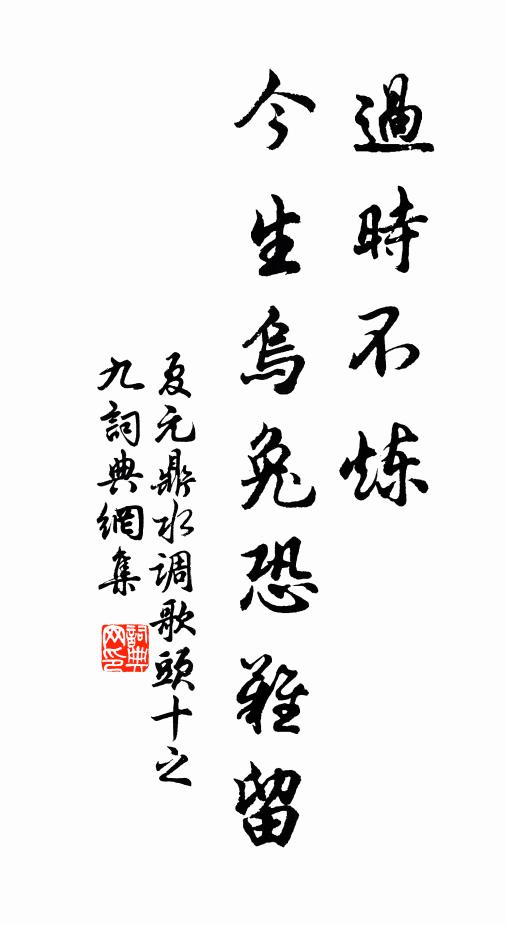 過時不炼
今生烏兔恐難留
夏元鼎水调歌頭十之
九詞典網集
詞典
网印